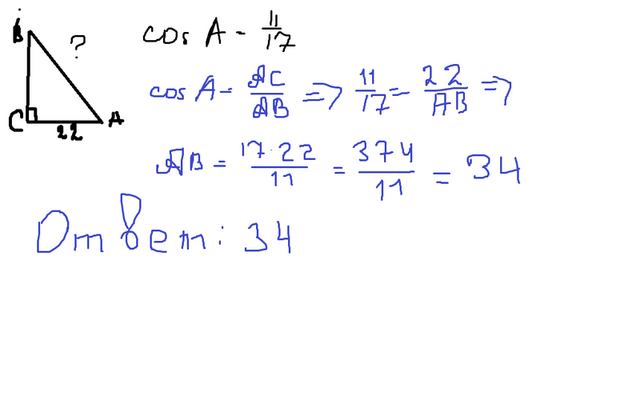 B
? cos A = 11/17
cos A = AC/AB => 11/17 = 22/AB =>
C A
22
AB = 17·22/11 = 374/11 = 34
Ответ: 34